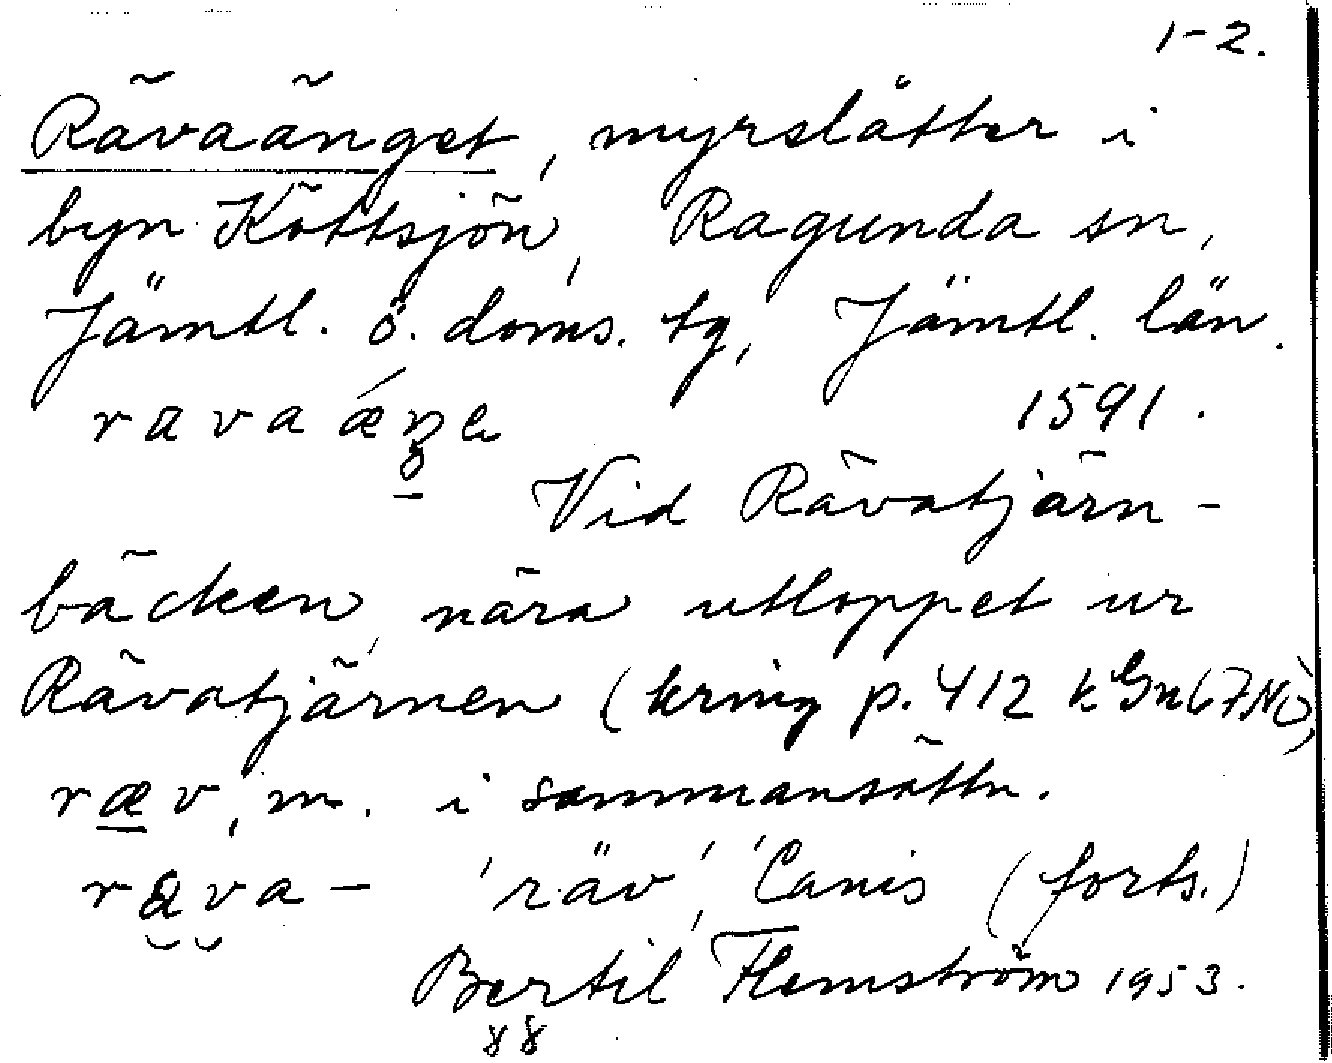 1-2.
Rävaänget, myrslåtter i
byn Köttsjön, Ragunda sn,
Jämtl. ö. doms. tg, Jämtl. län.
1591.
Vid Rävatjärn-
bäcken, nära utloppet ur
Rävatjärnen (kring p. 412 k Gn 67 NO),
ræv, m. i sammansättn.
rava- 'räv', 'Canis (forts.)
Bertil Flemström 1953.
88